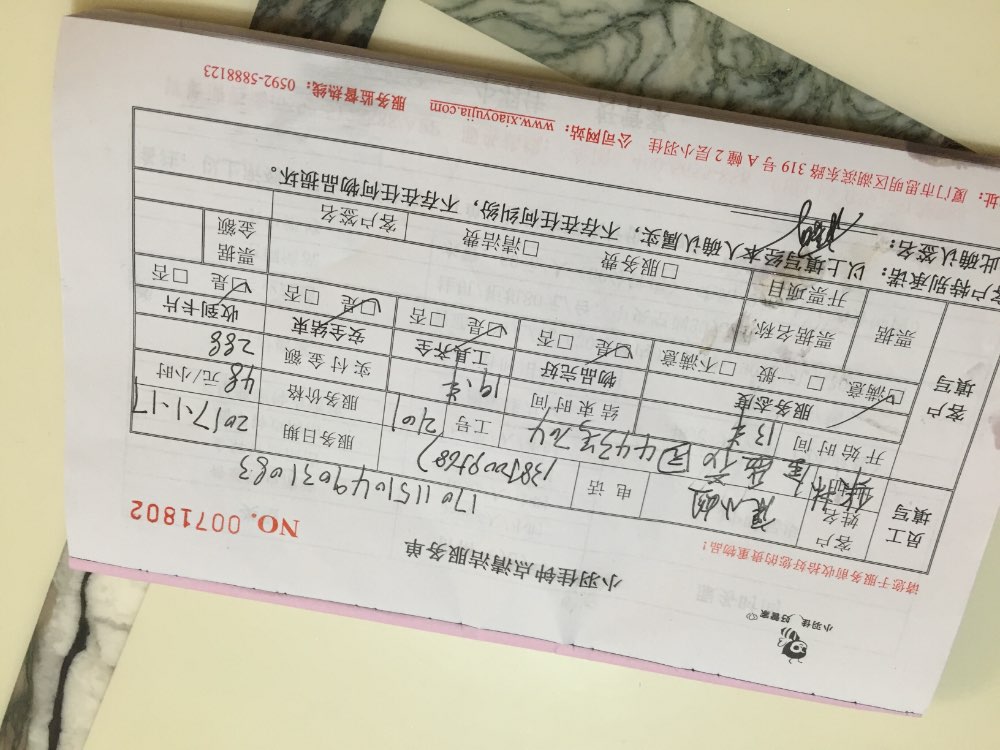 小羽佳 好管家
小羽佳钟点清洁服务单
请您于服务前收拾好您的贵重物品!
NO. 0071802
17011510449031083
员工填写
客户姓名
电话
服务日期 2017-1-17
工号 2401
服务价格 48元/小时
开始时间 13:00
结束时间 19:00
实付金额 288
客户填写
服务态度 满意 一般 不满意
物品完好 是 否
工具齐全 是 否
安全结束 是 否
收到卡片 是 否
票据
票据名称
票据金额
开票项目 服务费 清洁费
客户签名
客户特别承诺:以上填写经本人确认属实,不存在任何纠纷,不存在任何物品损坏。
此确认签名:
址:厦门市思明区湖滨东路 319 号 A 幢 2 层小羽佳 公司网站:www.xiaoyujia.com 服务监督热线:0592-5888123